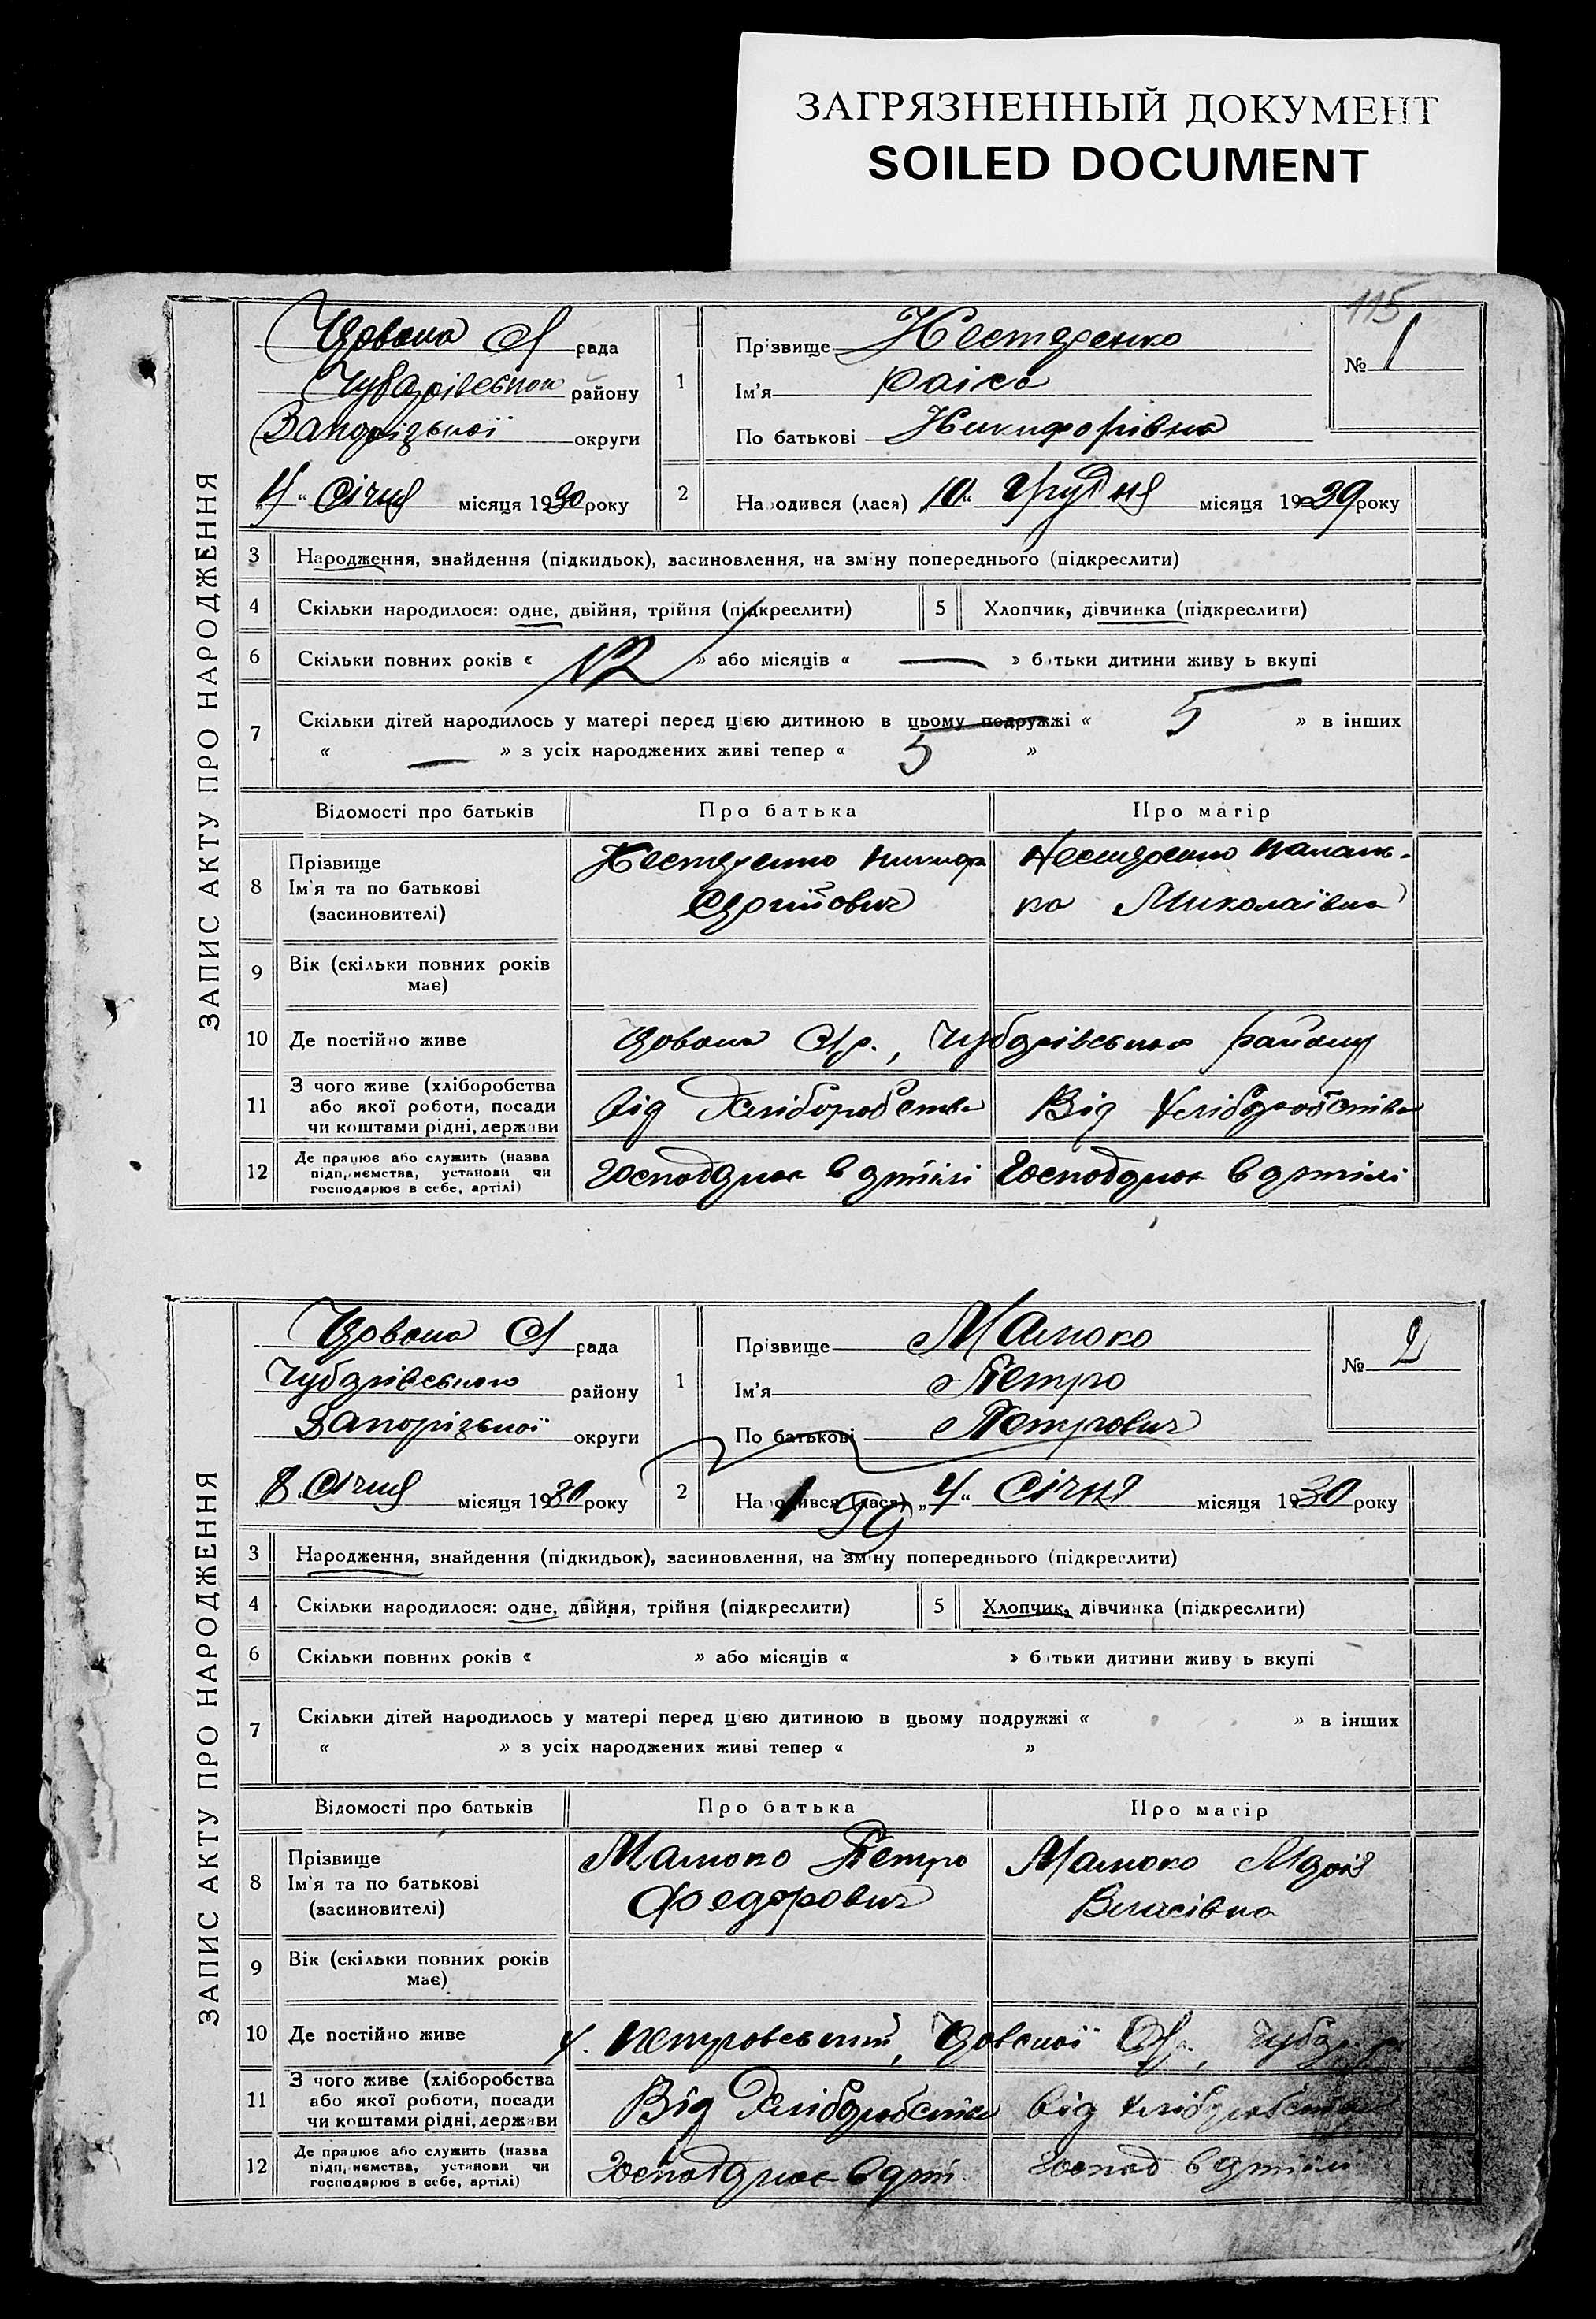 ЗАГРЯЗНЕННЫЙ ДОКУМЕНТ
SOILED DOCUMENT
115
ЗАПИС АКТУ ПРО НАРОДЖЕННЯ
рада
Чубарівського району
Запорізької округи
4 Січня місяця 1930 року
1
Прізвище Нестеренко
Ім'я Раїса
По батькові Никифорівна
№ 1
2
Народився (лася) 10 Грудня місяця 1929 року
3 Народження, знайдення (підкидьок), засиновлення, на зміну попереднього (підкреслити)
4 Скільки народилося: одне, двійня, трійня (підкреслити) 5 Хлопчик, дівчинка (підкреслити)
6 Скільки повних років « 12 » або місяців « — » батьки дитини живуть вкупі
7 Скільки дітей народилось у матері перед цією дитиною в цьому подружжі « 5 » в інших
« — » з усіх народжених живі тепер « 5 »
Відомості про батьків Про батька Про матір
8 Прізвище
Ім'я та по батькові
(засновителі)
Нестеренко Никифор
Сергійович
Нестеренко Палаж-
ка Миколаївна
9 Вік (скільки повних років
має)
10 Де постійно живе С/р., Чубарівського району
11 З чого живе (хліборобства
або якої роботи, посади
чи коштами рідні, держави
Від Хліборобства Від Хліборобства
12 Де працює або служить (назва
підприємства, установи чи
господарює в себе, артілі)
Господарює в артілі Господарює в артілі
ЗАПИС АКТУ ПРО НАРОДЖЕННЯ
рада
Чубарівського району
Запорізької округи
8 Січня місяця 1930 року
1
Прізвище
Ім'я Петро
По батькові Петрович
№ 2
2
Народився (лася) „4“ Січня місяця 1930 року
3 Народження, знайдення (підкидьок), засиновлення, на зміну попереднього (підкреслити)
4 Скільки народилося: одне, двійня, трійня (підкреслити) 5 Хлопчик, дівчинка (підкреслити)
6 Скільки повних років « » або місяців « » батьки дитини живуть вкупі
7 Скільки дітей народилось у матері перед цією дитиною в цьому подружжі « » в інших
« » з усіх народжених живі тепер « »
Відомості про батьків Про батька Про матір
8 Прізвище
Ім'я та по батькові
(засиновителі)
Петро
Федорович
Марія
Власівна
9 Вік (скільки повних років
має)
10 Де постійно живе х. Петровський,
11 З чого живе (хліборобства
або якої роботи, посади
чи коштами рідні, держави
Від Хліборобства від хліборобства
12 Де працює або служить (назва
підприємства, установи чи
господарює в себе, артілі)
Господарює в арті. Господ в артілі